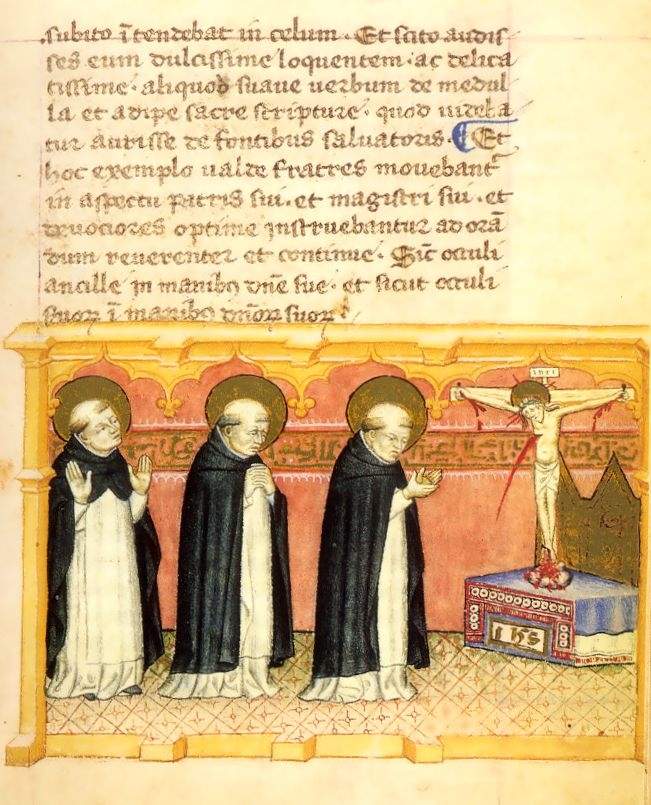 subito ī tendebat in celum. Et scito audis
ses eum dulcissime loquentem. ac delica
tissime. aliquod suaue uerbum de medul
la et adipe sacre scripture. quod uideba
tur aurisse de fontibus saluatoris. Et
hoc exemplo ualde fratres mouebant̄
in aspectu patris sui. et magistri sui. et
deuociores optime instruebantur ad orā
dum reuerenter et continue. Sic̄ occuli
ancille in manibꝯ dn̄e sue. et sicut occuli
suoꝝ ī manibꝯ dn̄oꝝ suoꝝ.
INRI
ihs